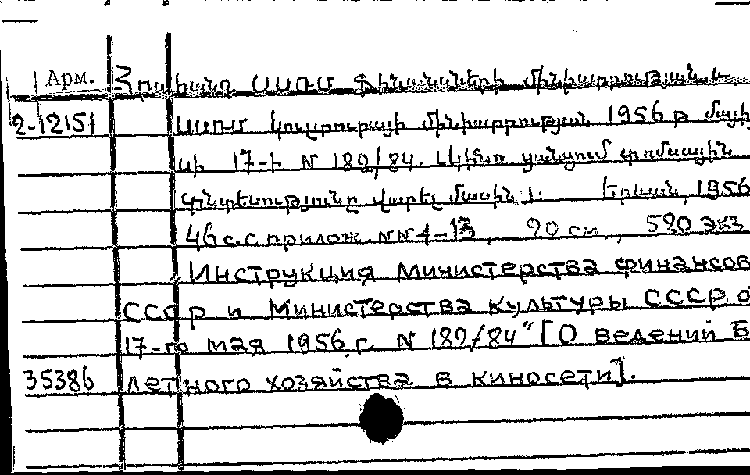 Арм. Հրահանգ ՍՍՌՄ Ֆինանսների մինիստրության և
2-12151 ՍՍՌՄ կուլտուրայի մինիստրության 1956 թ մայի
սի 17-ի N 189/84. կինո ցանցում տոմսային
տնտեսությունը վարելու մասին). Երևան, 1956
46 с. с прилож. NN 1-13, 20 см, 520 экз
Инструкция Министерства финансов
СССР и Министерства культуры СССР о
17-го мая 1956 г. N 189/84" [О ведений Б
35386 летного хозяйства в киносети].